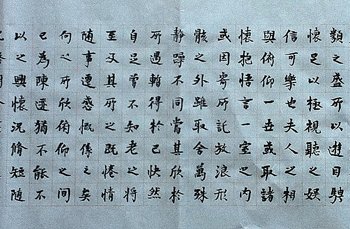 類之盛所以遊目騁
懷足以極視聽之娛
信可樂也夫人之相
與俯仰一世或取諸
懷抱悟言一室之內
或因寄所託放浪形
骸之外雖取舍萬殊
靜躁不同當其欣於
所遇暫得於己快然
自足曾不知老之將
至及其所之既倦情
隨事遷感慨係之矣
向之所欣俯仰之間
已為陳迹猶不能不
以之興懷況脩短隨